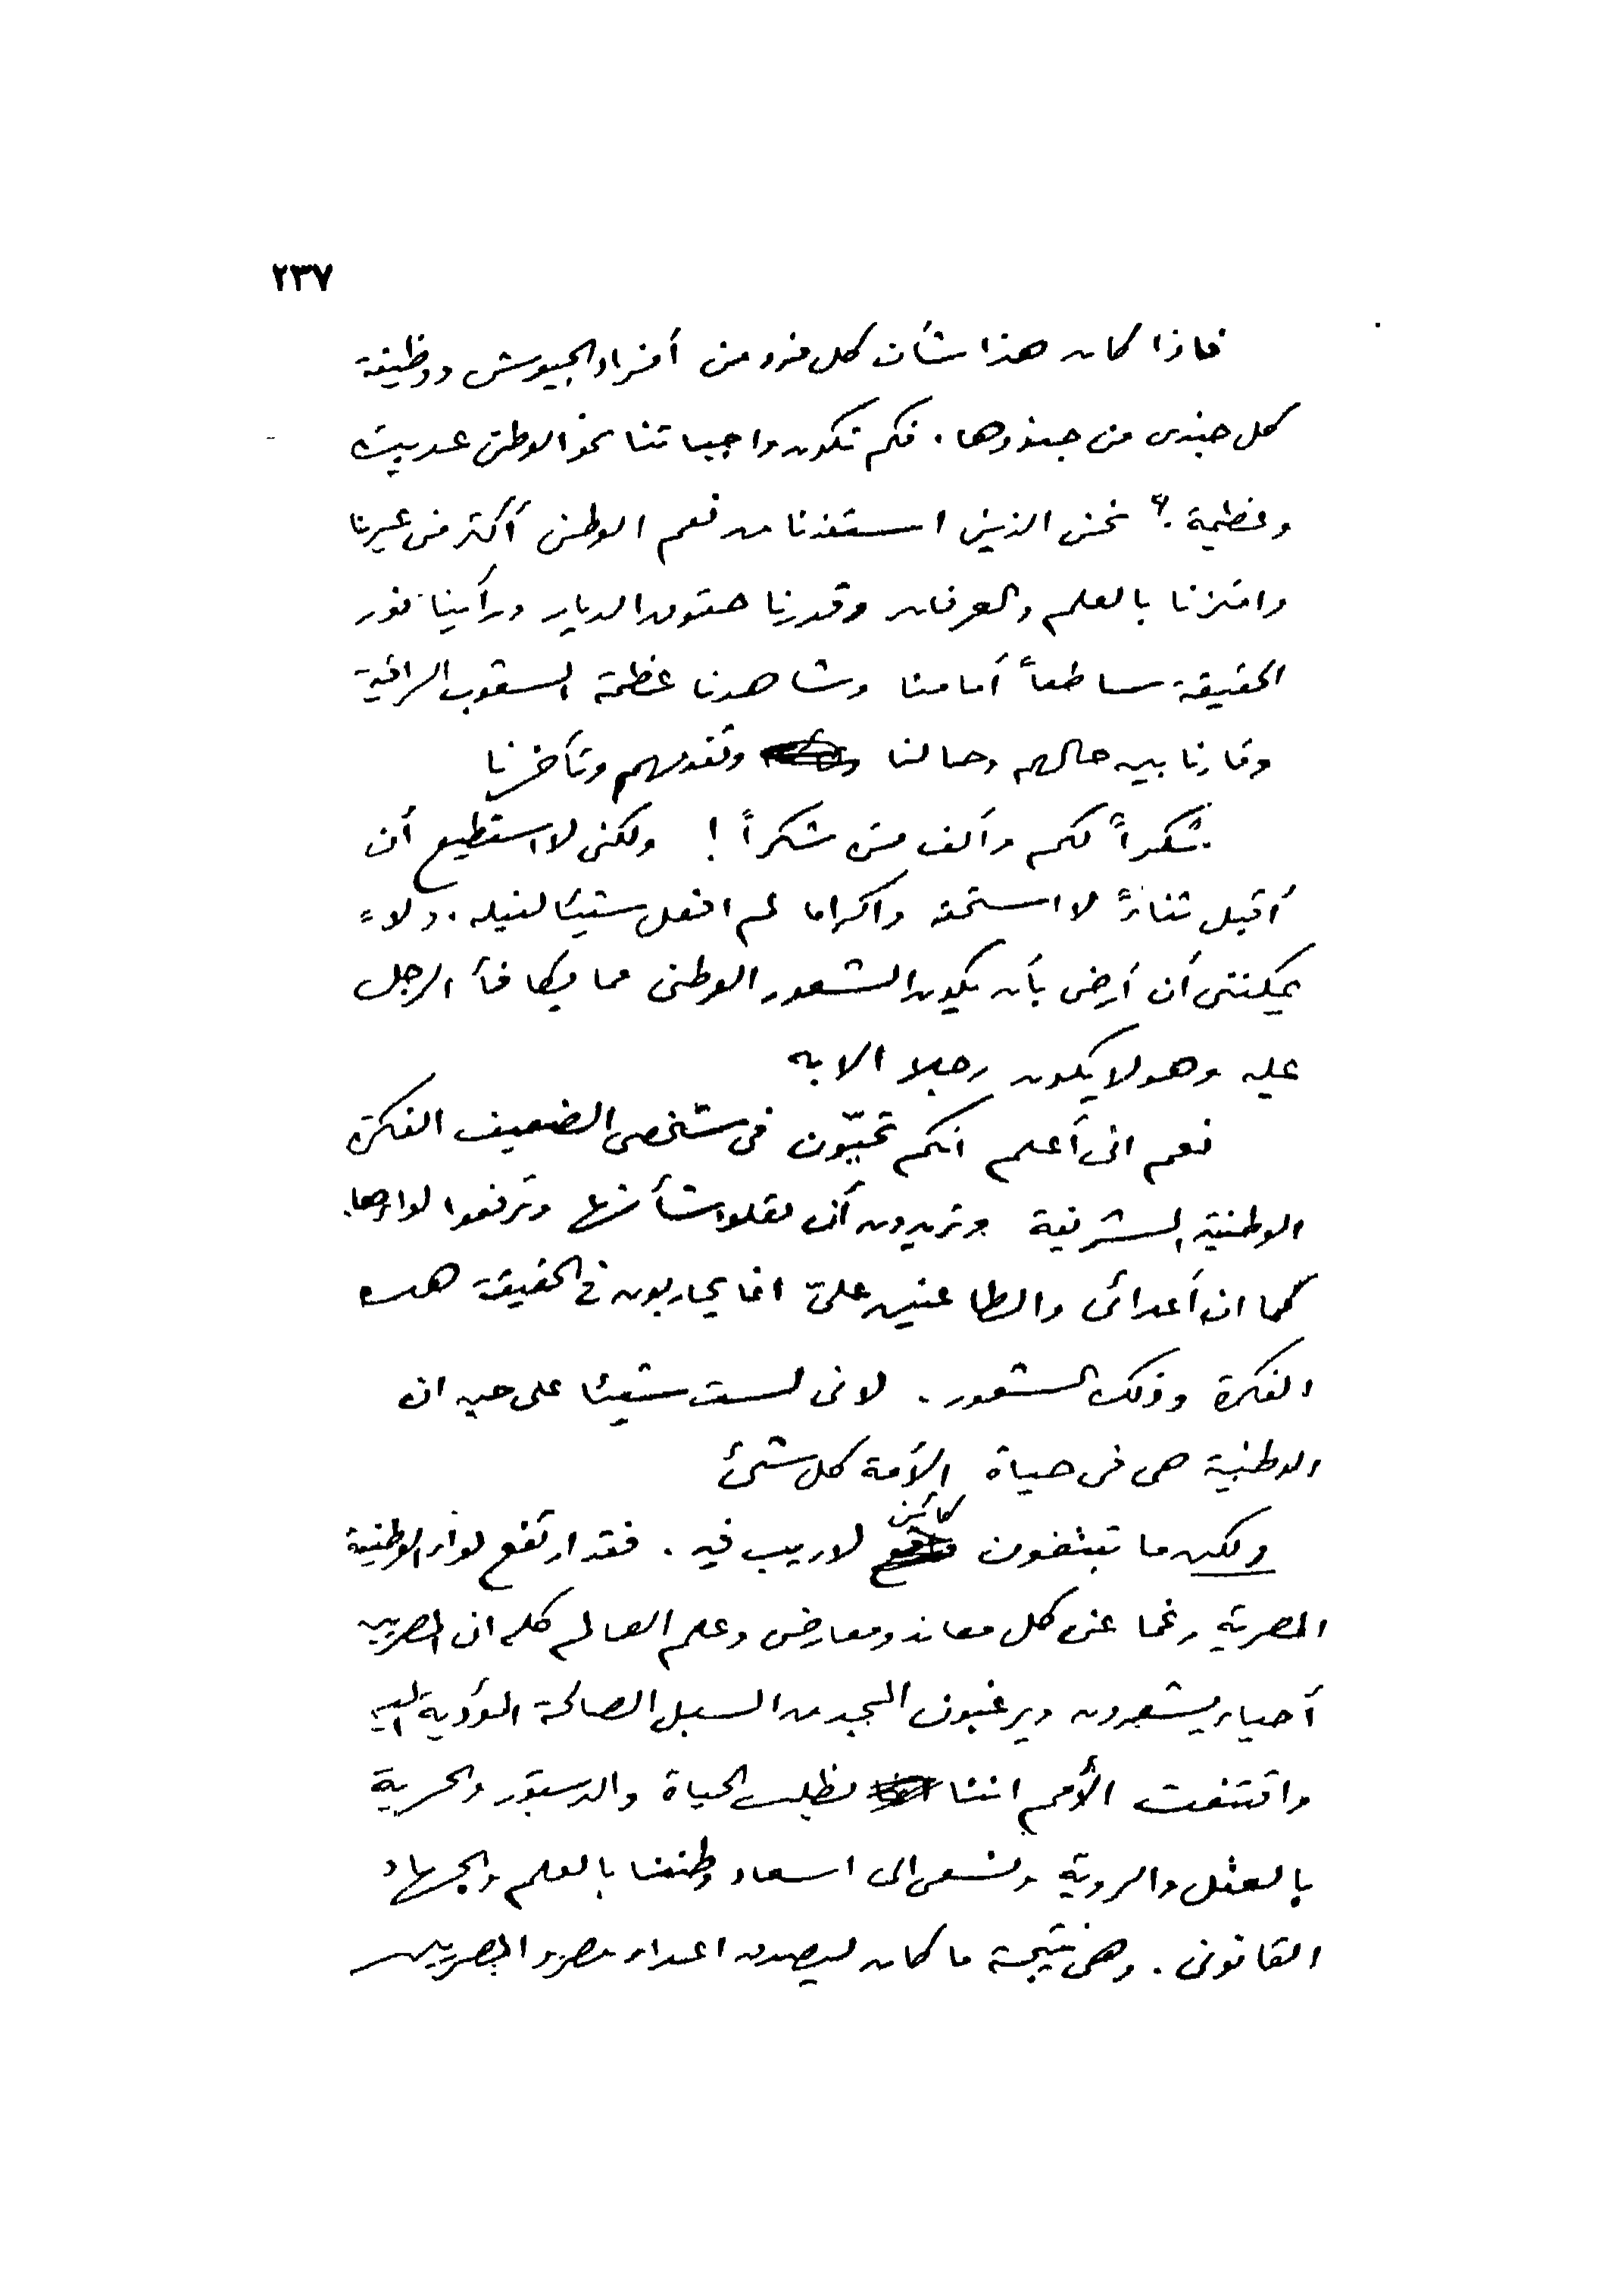 ٢٣٧
فاذا كان هذا شأن كل فرد من أفراد الجيوش ووظيفة
كل جندى من جنودها . فكم تكون واجباتنا نحو الوطن عديدة
وعظيمة ؟ نحن الذين استفدنا من نعم الوطن أكثر من غيرنا
وامتزنا بالعلم والعرفان وقدرنا حقوق الديار ورأينا نور
الحقيقة ساطعاً أمامنا وشاهدنا عظمة الشعوب الراقية
وقارنا بين حالهم وحالنا وتقدمهم وتأخرنا
شكراً لكم وألف مرة شكراً ! ولكنى لا استطيع أن
أقبل ثناءً لا استحقه واكراما لم افعل شيئا لنيله . ولا
يمكننى أن أرضى بأن يكون الشعور الوطنى مما يكافأ الرجل
عليه وهو لا يكون رجلا الا به
نعم انى أعلم انكم تحيّون فى شخصى الضعيف الفكرة
الوطنية الشريفة وتريدون أن تعلوا شأنها وترفعوا لواءها
كما ان أعدائى والطاعنين علىّ انما يحاربون فى الحقيقة هذه
الفكرة وذلك الشعور . لانى لست شيئا على حين ان
الوطنية هى فى حياة الأمة كل شئ
ولكن ما تبتغون كائن لا ريب فيه . فقد ارتفع لواء الوطنية
المصرية رغما عن كل معاند ومعارض وعلم العالم كله ان المصريين
أحياء يشعرون ويرغبون المجد من السبل الصالحة المؤدية اليه
واقتنعت الأمم اننا نطلب الحياة والدستور والحرية
بالعقل والروية ونسعى الى اسعاد وطننا بالعلم والجهاد
القانونى . وهى نتيجة ما كان ليصدق اعداء مصر والمصريين